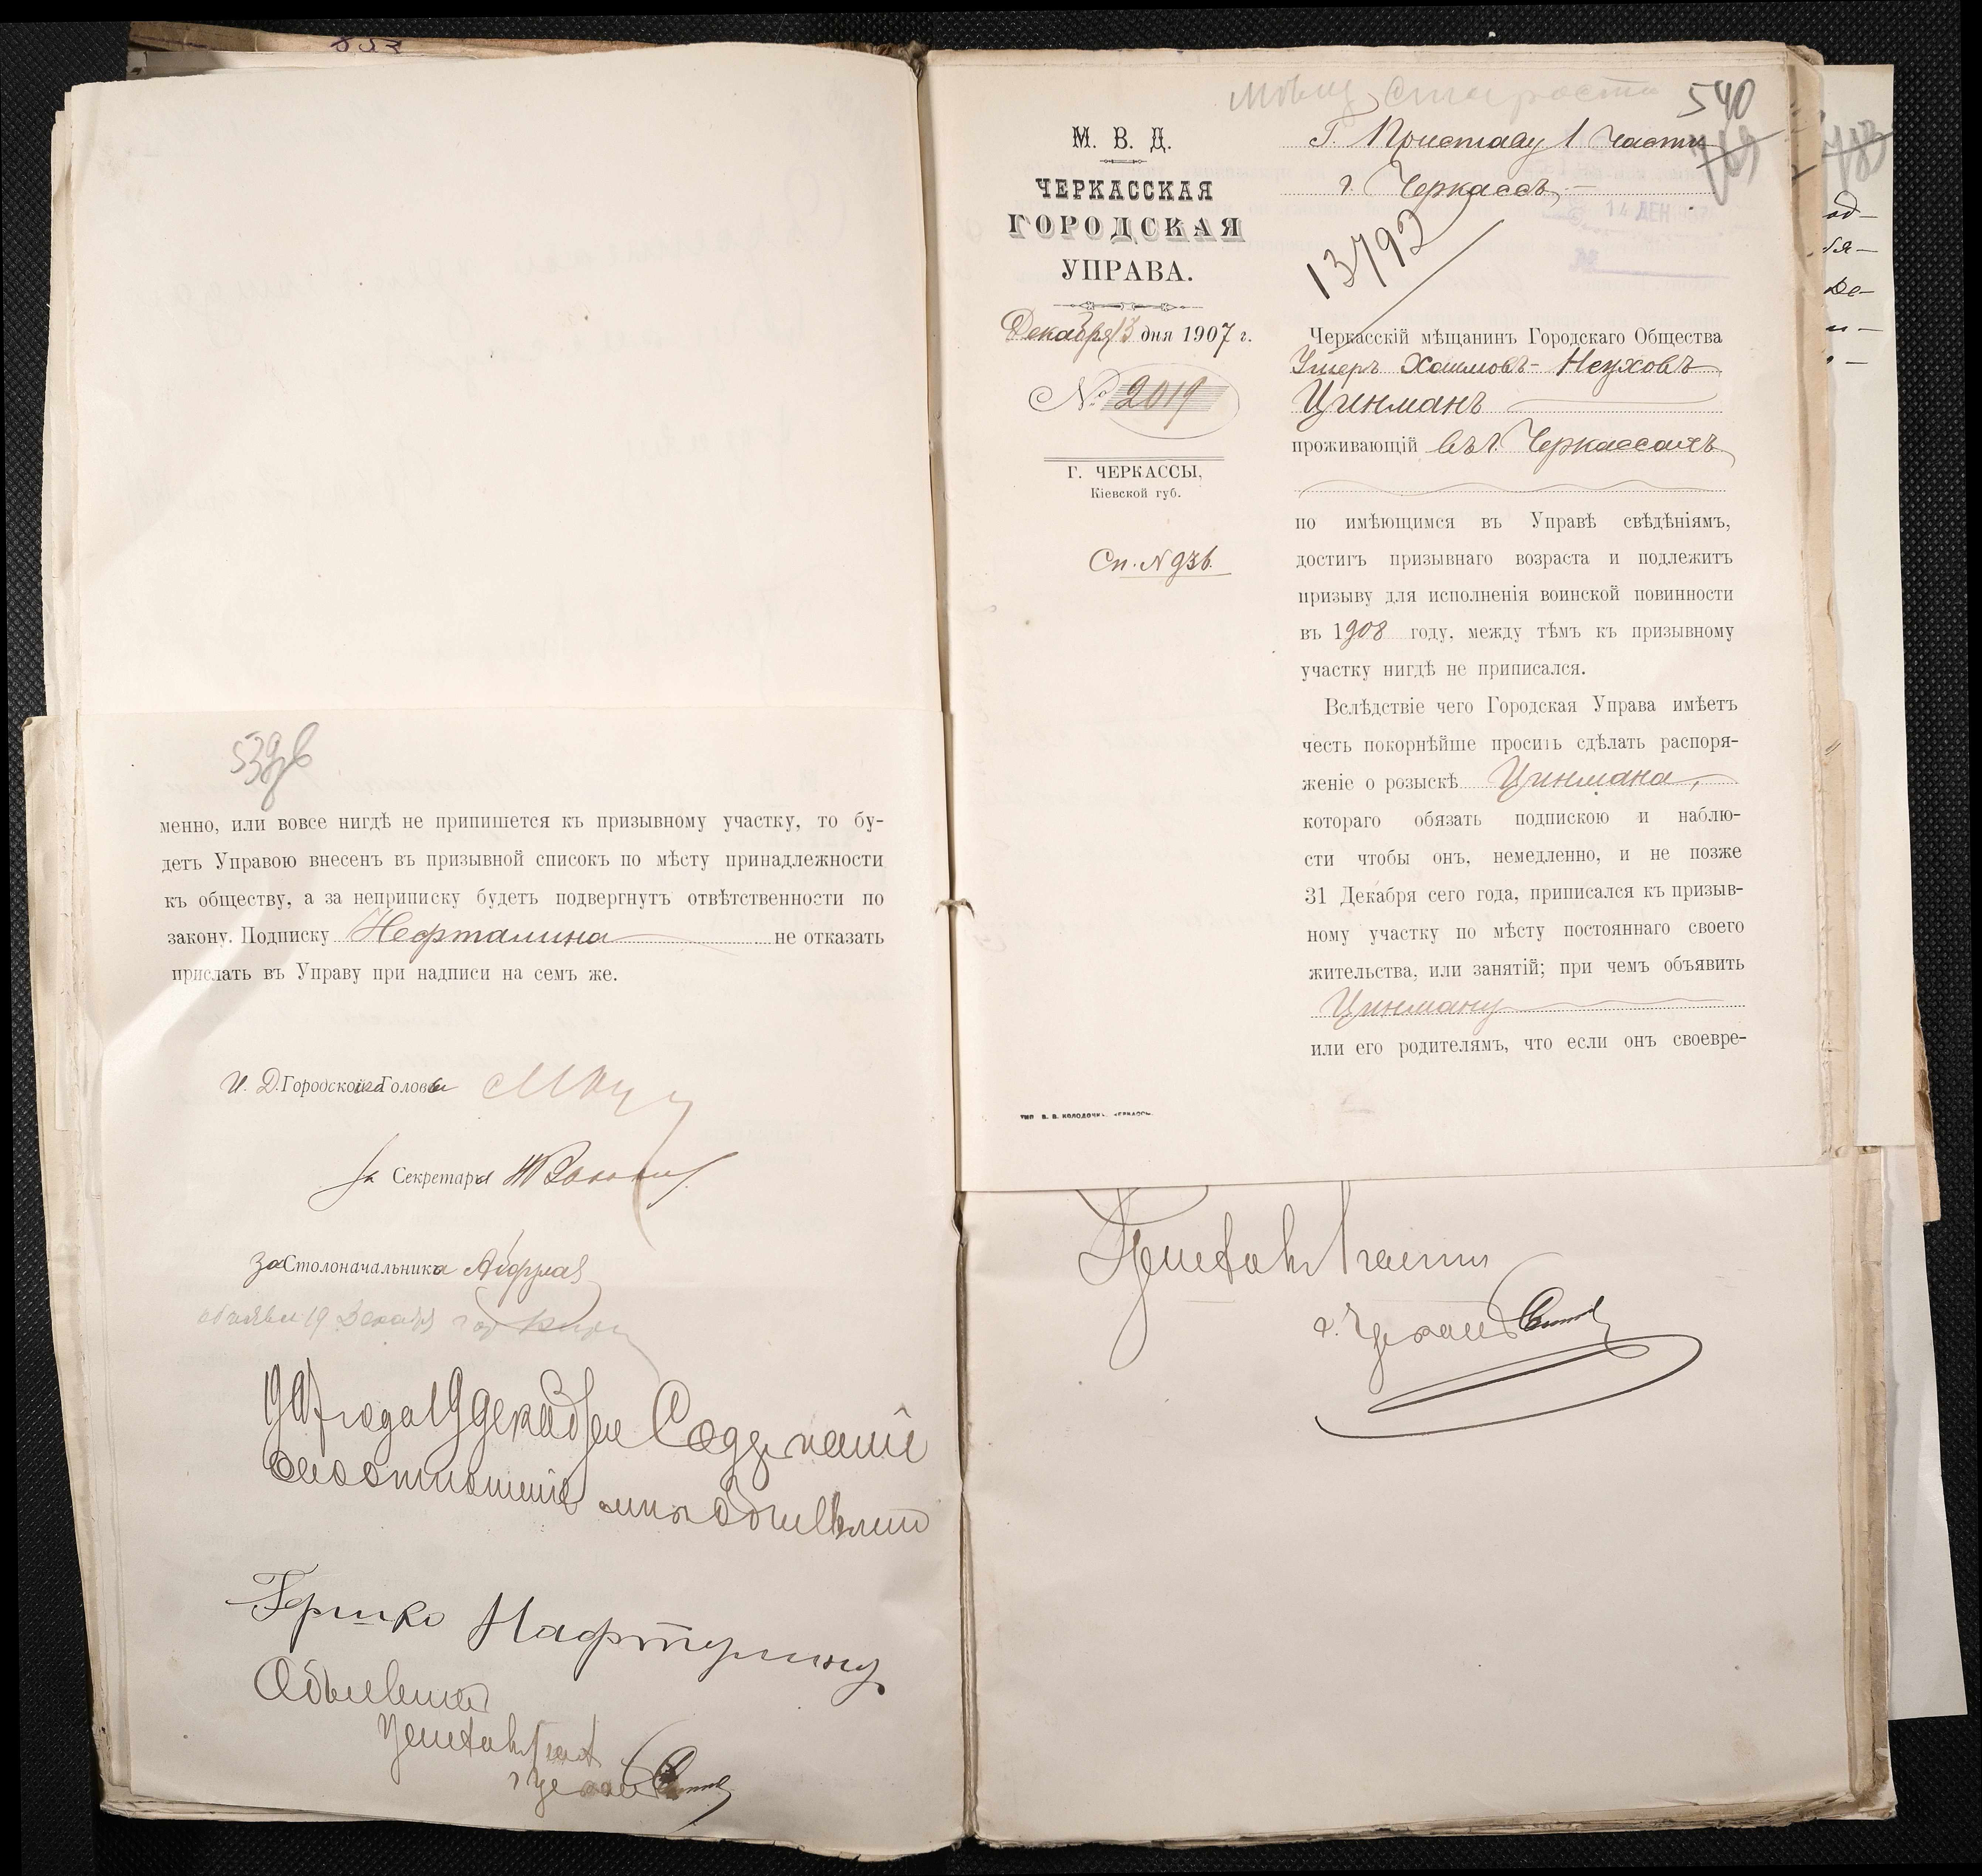 539об
менно, или вовсе нигдѣ не припишется къ призывному участку, то бу-
детъ Управою внесенъ въ призывной списокъ по мѣсту принадлежности
къ обществу, а за неприписку будетъ подвергнутъ отвѣтственности по
закону. Подписку Нефталина не отказать
прислать въ Управу при надписи на семъ же.
И. Д. Городского Головы
За Секретаря
За Столоначальника
19 Декабря
1907 года 19 декабря Содержаніе
сего отношенія мнѣ объявлено
Гершко Нафтулинъ
Объявилъ
Приставъ 1 части
г. Черкассъ
540
Г. Приставу 1 части
г. Черкассъ
14 ДЕК 1907
№
13792
М. В. Д.
ЧЕРКАССКАЯ
ГОРОДСКАЯ
УПРАВА.
Декабря 13 дня 1907 г.
№ 2019
Г. ЧЕРКАССЫ,
Кіевской губ.
Сп. № 936.
Черкасскій мѣщанинъ Городскаго Общества
Ушеръ Хаимовъ-Неуховъ
Цинманъ
проживающій въ г. Черкассахъ
по имѣющимся въ Управѣ свѣдѣніямъ,
достигъ призывнаго возраста и подлежитъ
призыву для исполненія воинской повинности
въ 1908 году, между тѣмъ къ призывному
участку нигдѣ не приписался.
Вслѣдствіе чего Городская Управа имѣетъ
честь покорнѣйше просить сдѣлать распоря-
женіе о розыскѣ Цинмана,
котораго обязать подпискою и наблю-
сти чтобы онъ, немедленно, и не позже
31 Декабря сего года, приписался къ призыв-
ному участку по мѣсту постояннаго своего
жительства, или занятій; при чемъ объявить
Цинману
или его родителямъ, что если онъ своевре-
Приставъ 1 части
г. Черкассъ